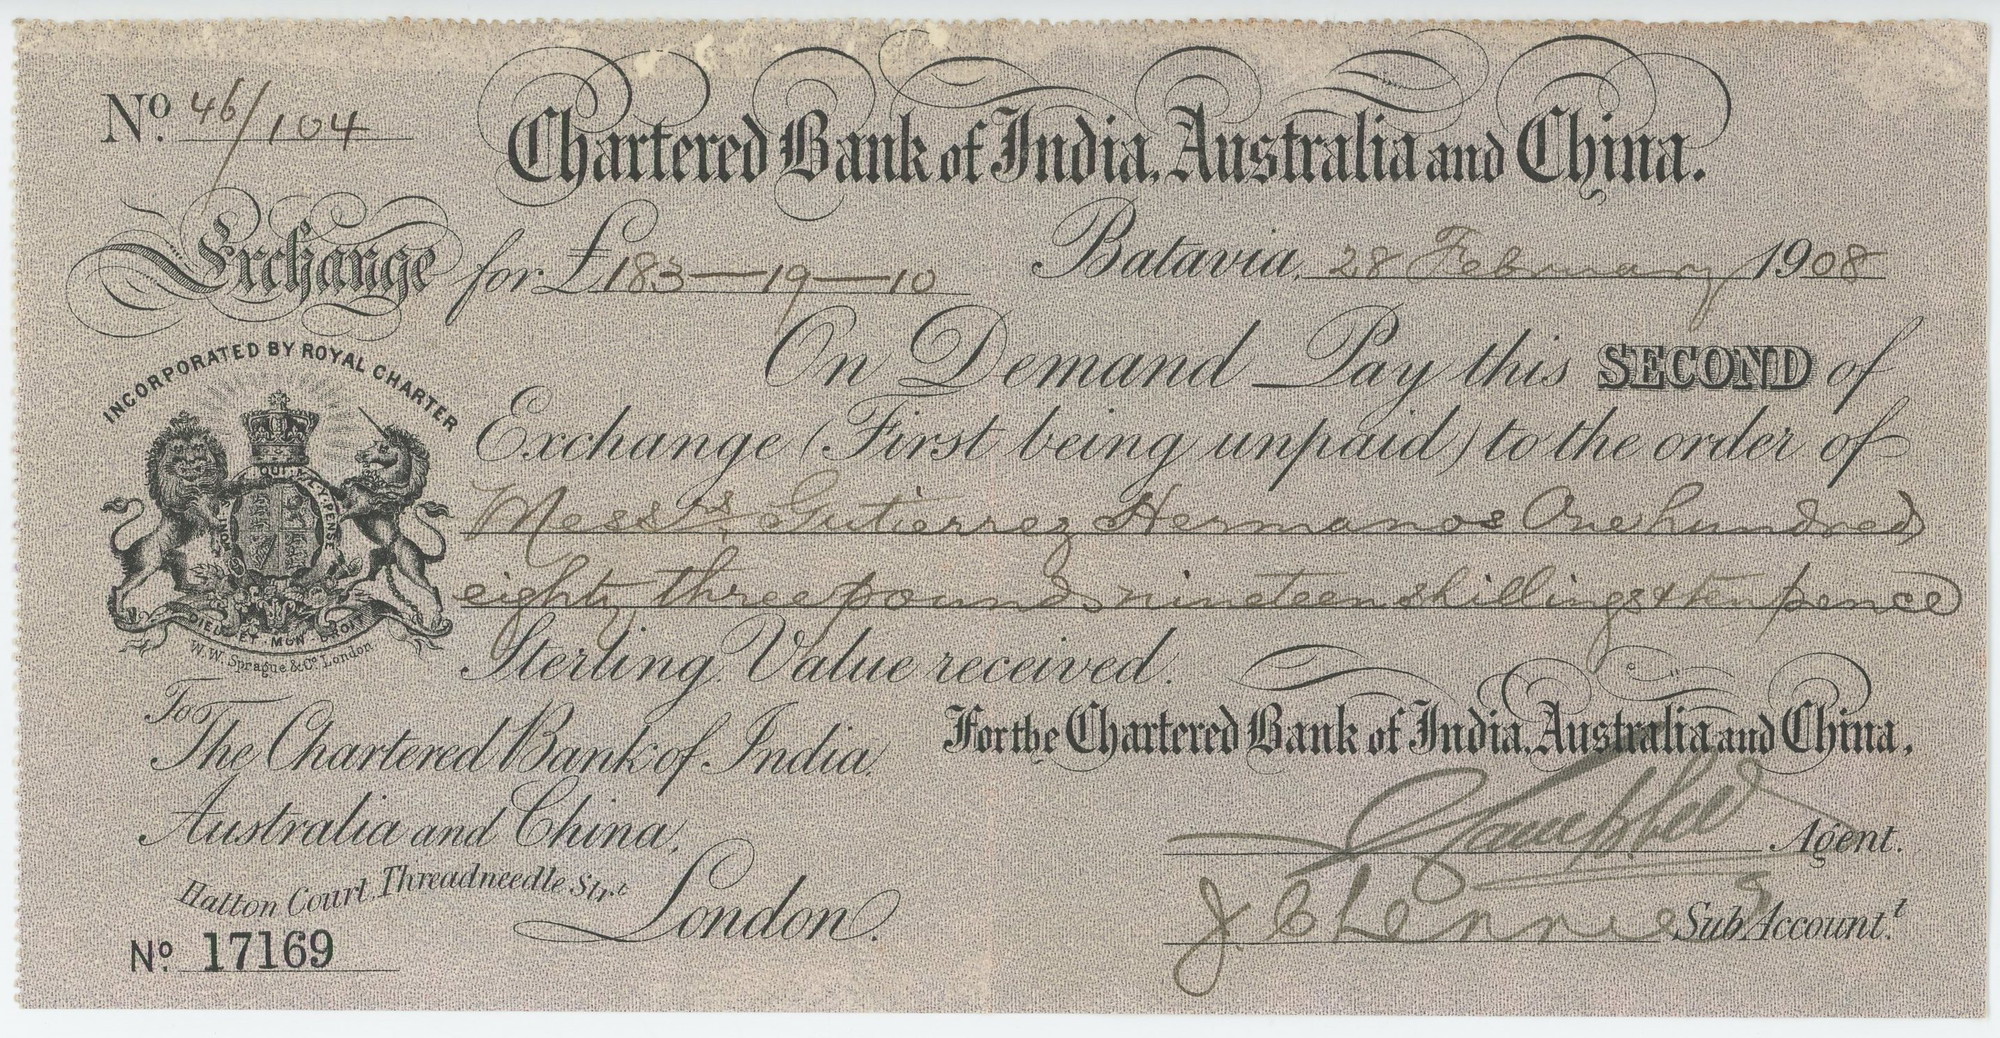 No. 46/104
Chartered Bank of India, Australia and China.
Exchange for £183—19—10 Batavia, 28 February 1908
On Demand Pay this SECOND of
Exchange (First being unpaid) to the order of
Messrs. Gutierrez Hermanos One hundred
eighty three pounds nineteen shillings & ten pence
Sterling. Value received.
INCORPORATED BY ROYAL CHARTER
DIEU ET MON DROIT
W. W. Sprague & Co. London
To
The Chartered Bank of India,
Australia and China,
Hatton Court, Threadneedle Strt.
London.
No. 17169
For the Chartered Bank of India, Australia and China,
Campbell Agent.
Sub Accountt.